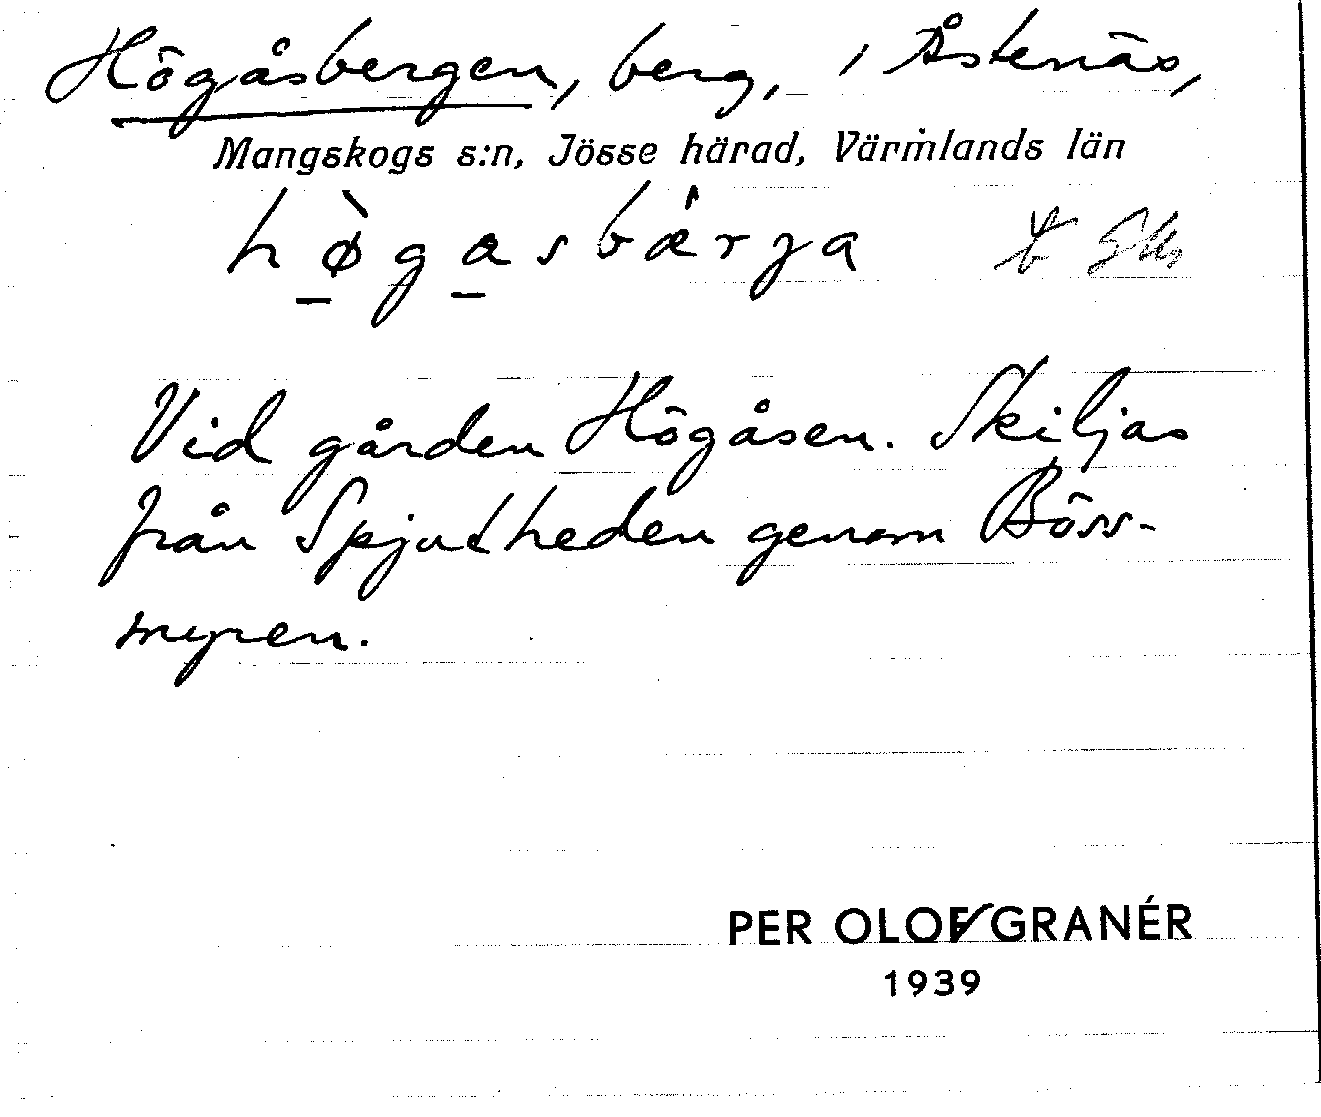 Högåsbergen, berg, i Åstenäs,
Mangskogs s:n, Jösse härad, Värmlands län
hø̀gasbǽrja
Vid gården Högåsen. Skiljas
från Spjutheden genom Böss-
myren.
PER OLOF GRANÉR
1939